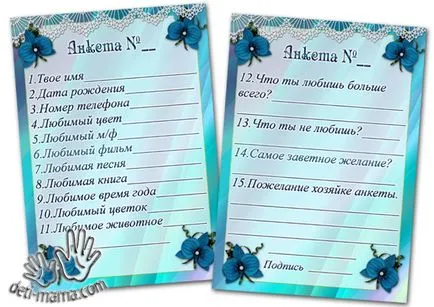 Анкета №__
1.Твое имя
2.Дата рождения
3.Номер телефона
4.Любимый цвет
5.Любимый м/ф
6.Любимый фильм
7.Любимая песня
8.Любимая книга
9.Любимое время года
10.Любимый цветок
11.Любимое животное
deti-mama.com
Анкета №__
12.Что ты любишь больше
всего?
13. Что ты не любишь?
14.Самое заветное желание?
15.Пожелание хозяйке анкеты.
Подпись